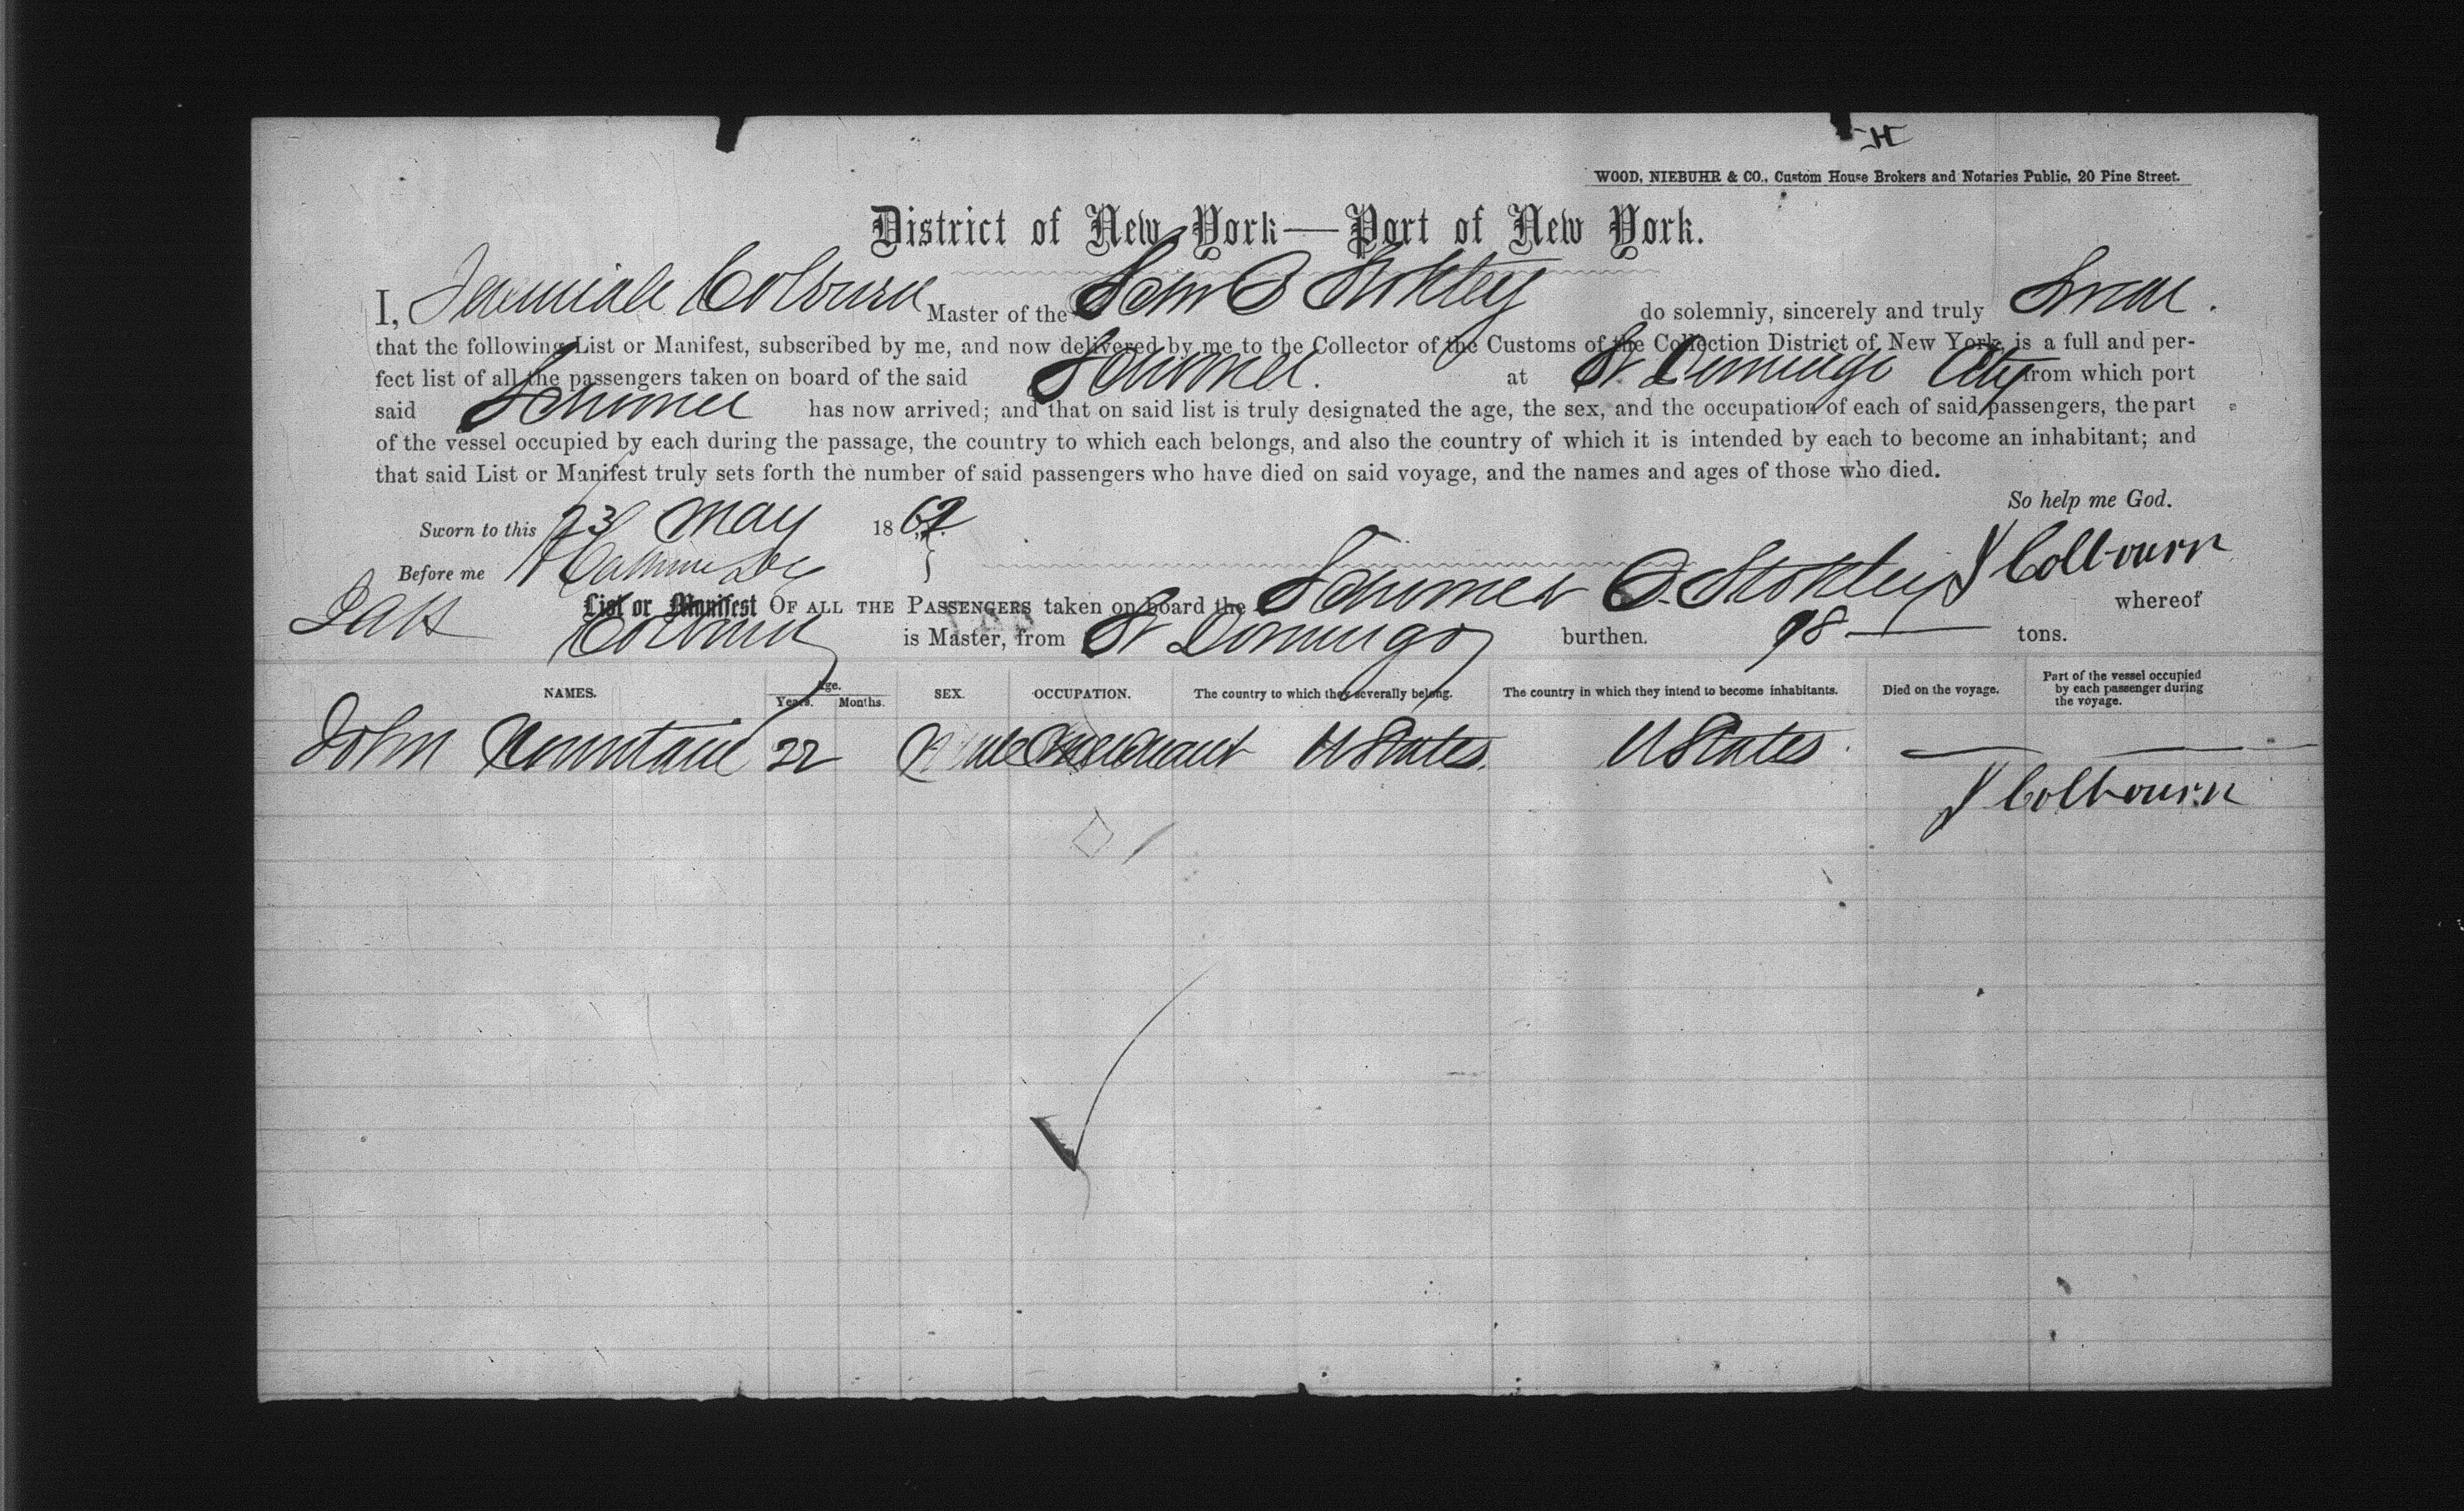 WOOD, NIEBUHR & CO., Custom House Brokers and Notaries Public, 20 Pine Street.
District of New York—Port of New York.
I, Jeremiah Colburn Master of the Schr Stokley do solemnly, sincerely and truly Swear.
that the following List or Manifest, subscribed by me, and now delivered by me to the Collector of the Customs of the Collection District of New York, is a full and per-
fect list of all the passengers taken on board of the said Schooner. at St Domingo City from which port
said Schooner has now arrived; and that on said list is truly designated the age, the sex, and the occupation of each of said passengers, the part
of the vessel occupied by each during the passage, the country to which each belongs, and also the country of which it is intended by each to become an inhabitant; and
that said List or Manifest truly sets forth the number of said passengers who have died on said voyage, and the names and ages of those who died.
So help me God.
Sworn to this 23 May 1869
J Colbourn
Before me
List or Manifest OF ALL THE PASSENGERS taken on board the Schooner Stokley whereof
Colburn is Master, from St Domingo burthen. 98 — tons.
NAMES. Age. Years. Months. SEX. OCCUPATION. The country to which they severally belong. The country in which they intend to become inhabitants. Died on the voyage. Part of the vessel occupied by each passenger during the voyage.
John 22 Male Merchant U States. U States. —
J Colbourn